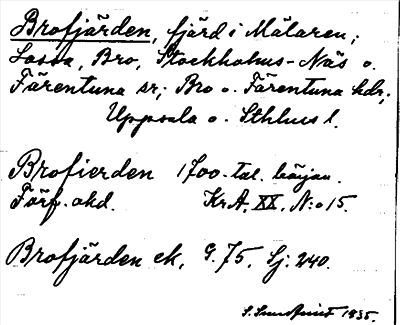 Brofjärden, fjärd i Mälaren;
Lossa, Bro, Stockholms-Näs o.
Färentuna sr; Bro o. Färentuna hdr;
Uppsala o. Sthlms l.
Brofierden 1700-tal. början.
Förf. okd. KrA, XX, N:o 15.
Brofjärden ek, G. 75, Sj: 240.
1935.